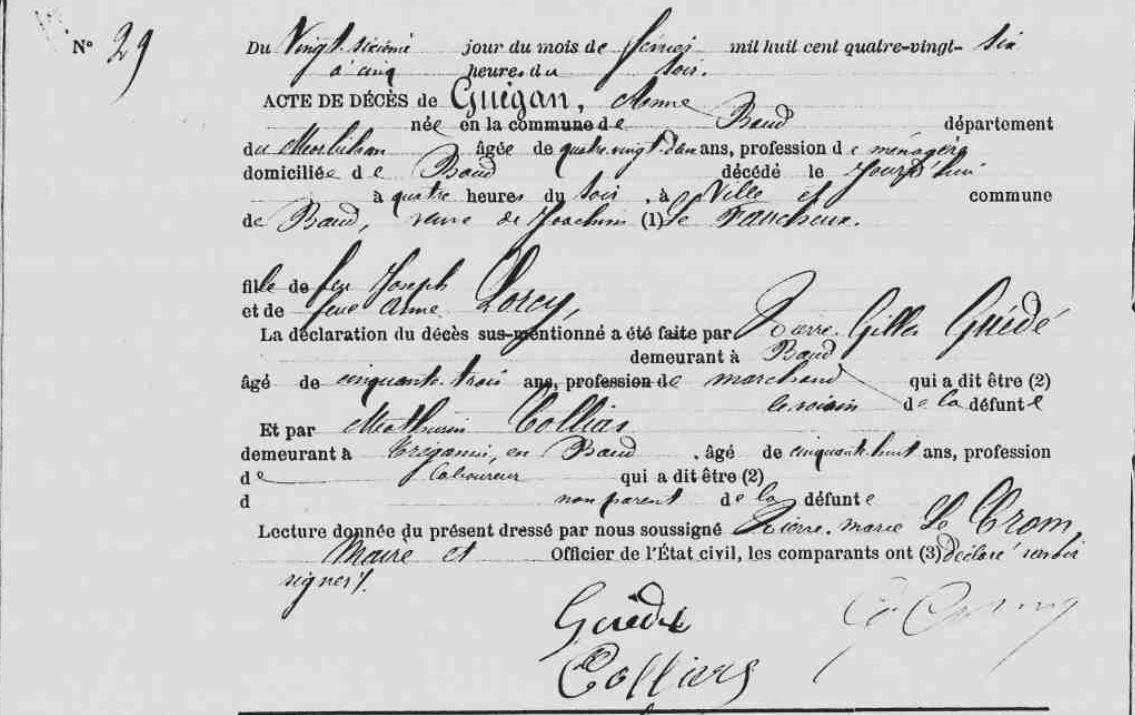 N° 29
Du Vingt-sixième jour du mois de février mil huit cent quatre-vingt-six
à cinq heures du soir.
ACTE DE DÉCÈS de Guégan, Anne
née en la commune de Baud département
du Morbihan âgée de quatre-vingt-deux ans, profession de ménagère
domiciliée de Baud décédé le jourd'hui
à quatre heures du soir, à Ville et commune
de Baud, veuve de Joachim (1) Le Faucheux.
fille de feu Joseph
et de feue Anne Lorcy,
La déclaration du décès sus-mentionné a été faite par Pierre Gilles Guédé
demeurant à Baud
âgé de cinquante-trois ans, profession de marchand qui a dit être (2)
le voisin de la défunte
Et par Mathurin Collias
demeurant à en Baud, âgé de cinquante-huit ans, profession
de laboureur qui a dit être (2)
d non parent de la défunte
Lecture donnée du présent dressé par nous soussigné Pierre-marie Le Crom,
Maire et Officier de l'État civil, les comparants ont (3) déclaré savoir
signer /.
Guédé
Collias